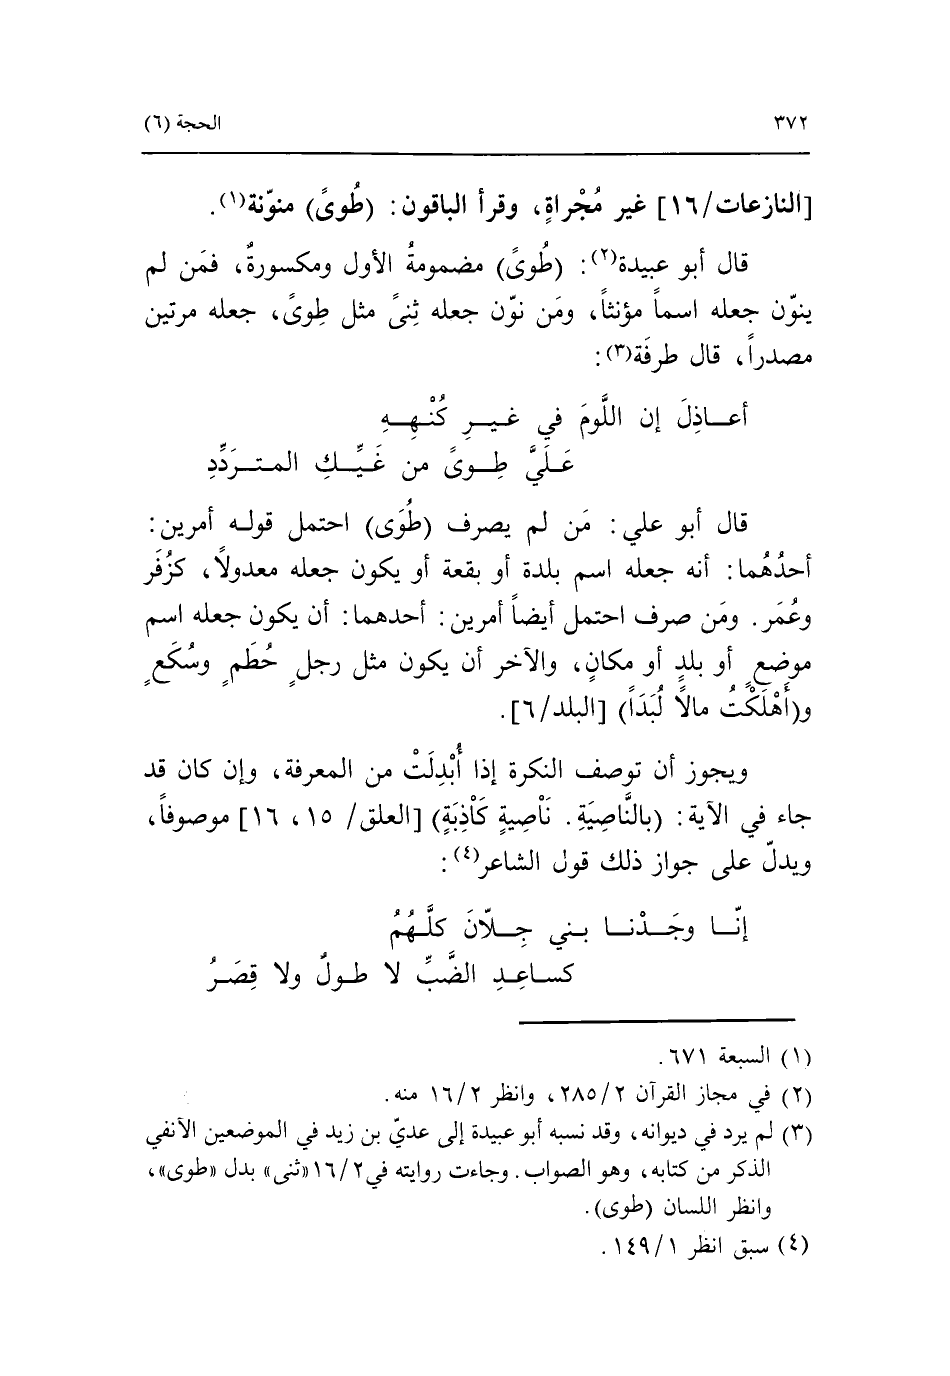 ٣٧٢ الحجة (٦)
[النازعات/١٦] غير مُجْراةٍ، وقرأ الباقون: (طُوىً) منوّنة(١).
قال أبو عبيدة(٢): (طُوىً) مضمومةُ الأول ومكسورةٌ، فمَن لم
ينوّن جعله اسماً مؤنثاً، ومَن نوّن جعله ثِنىً مثل طِوىً، جعله مرتين
مصدراً، قال طرفَة(٣):
أعـاذِلَ إن اللَّومَ في غـيـرِ كُنْهِـهِ
عَـلَيَّ طِـوىً من غَيِّـكِ المـتـرَدِّدِ
قال أبو علي: مَن لم يصرف (طُوَى) احتمل قوله أمرين:
أحدُهُما: أنه جعله اسم بلدة أو بقعة أو يكون جعله معدولاً، كزُفَر
وعُمَر. ومَن صرف احتمل أيضاً أمرين: أحدهما: أن يكون جعله اسم
موضعٍ أو بلدٍ أو مكانٍ، والآخر أن يكون مثل رجلٍ حُطَمٍ وسُكَعٍ
و(أَهْلَكْتُ مالاً لُبَدَاً) [البلد/٦].
ويجوز أن توصف النكرة إذا أُبْدِلَتْ من المعرفة، وإن كان قد
جاء في الآية: (بالنَّاصِيَةِ. نَاْصِيةٍ كَاْذِبَةٍ) [العلق/ ١٥، ١٦] موصوفاً،
ويدلّ على جواز ذلك قول الشاعر(٤):
إنّـا وجَـدْنـا بـني جِـلّانَ كلَّهُمُ
كسـاعِـدِ الضَّبِّ لا طـولٌ ولا قِصَـرُ
(١) السبعة ٦٧١.
(٢) في مجاز القرآن ٢٨٥/٢، وانظر ١٦/٢ منه.
(٣) لم يرد في ديوانه، وقد نسبه أبو عبيدة إلى عديّ بن زيد في الموضعين الآنفي
الذكر من كتابه، وهو الصواب. وجاءت روايته في ١٦/٢ «ثنى» بدل «طوى»،
وانظر اللسان (طوى).
(٤) سبق انظر ١٤٩/١.